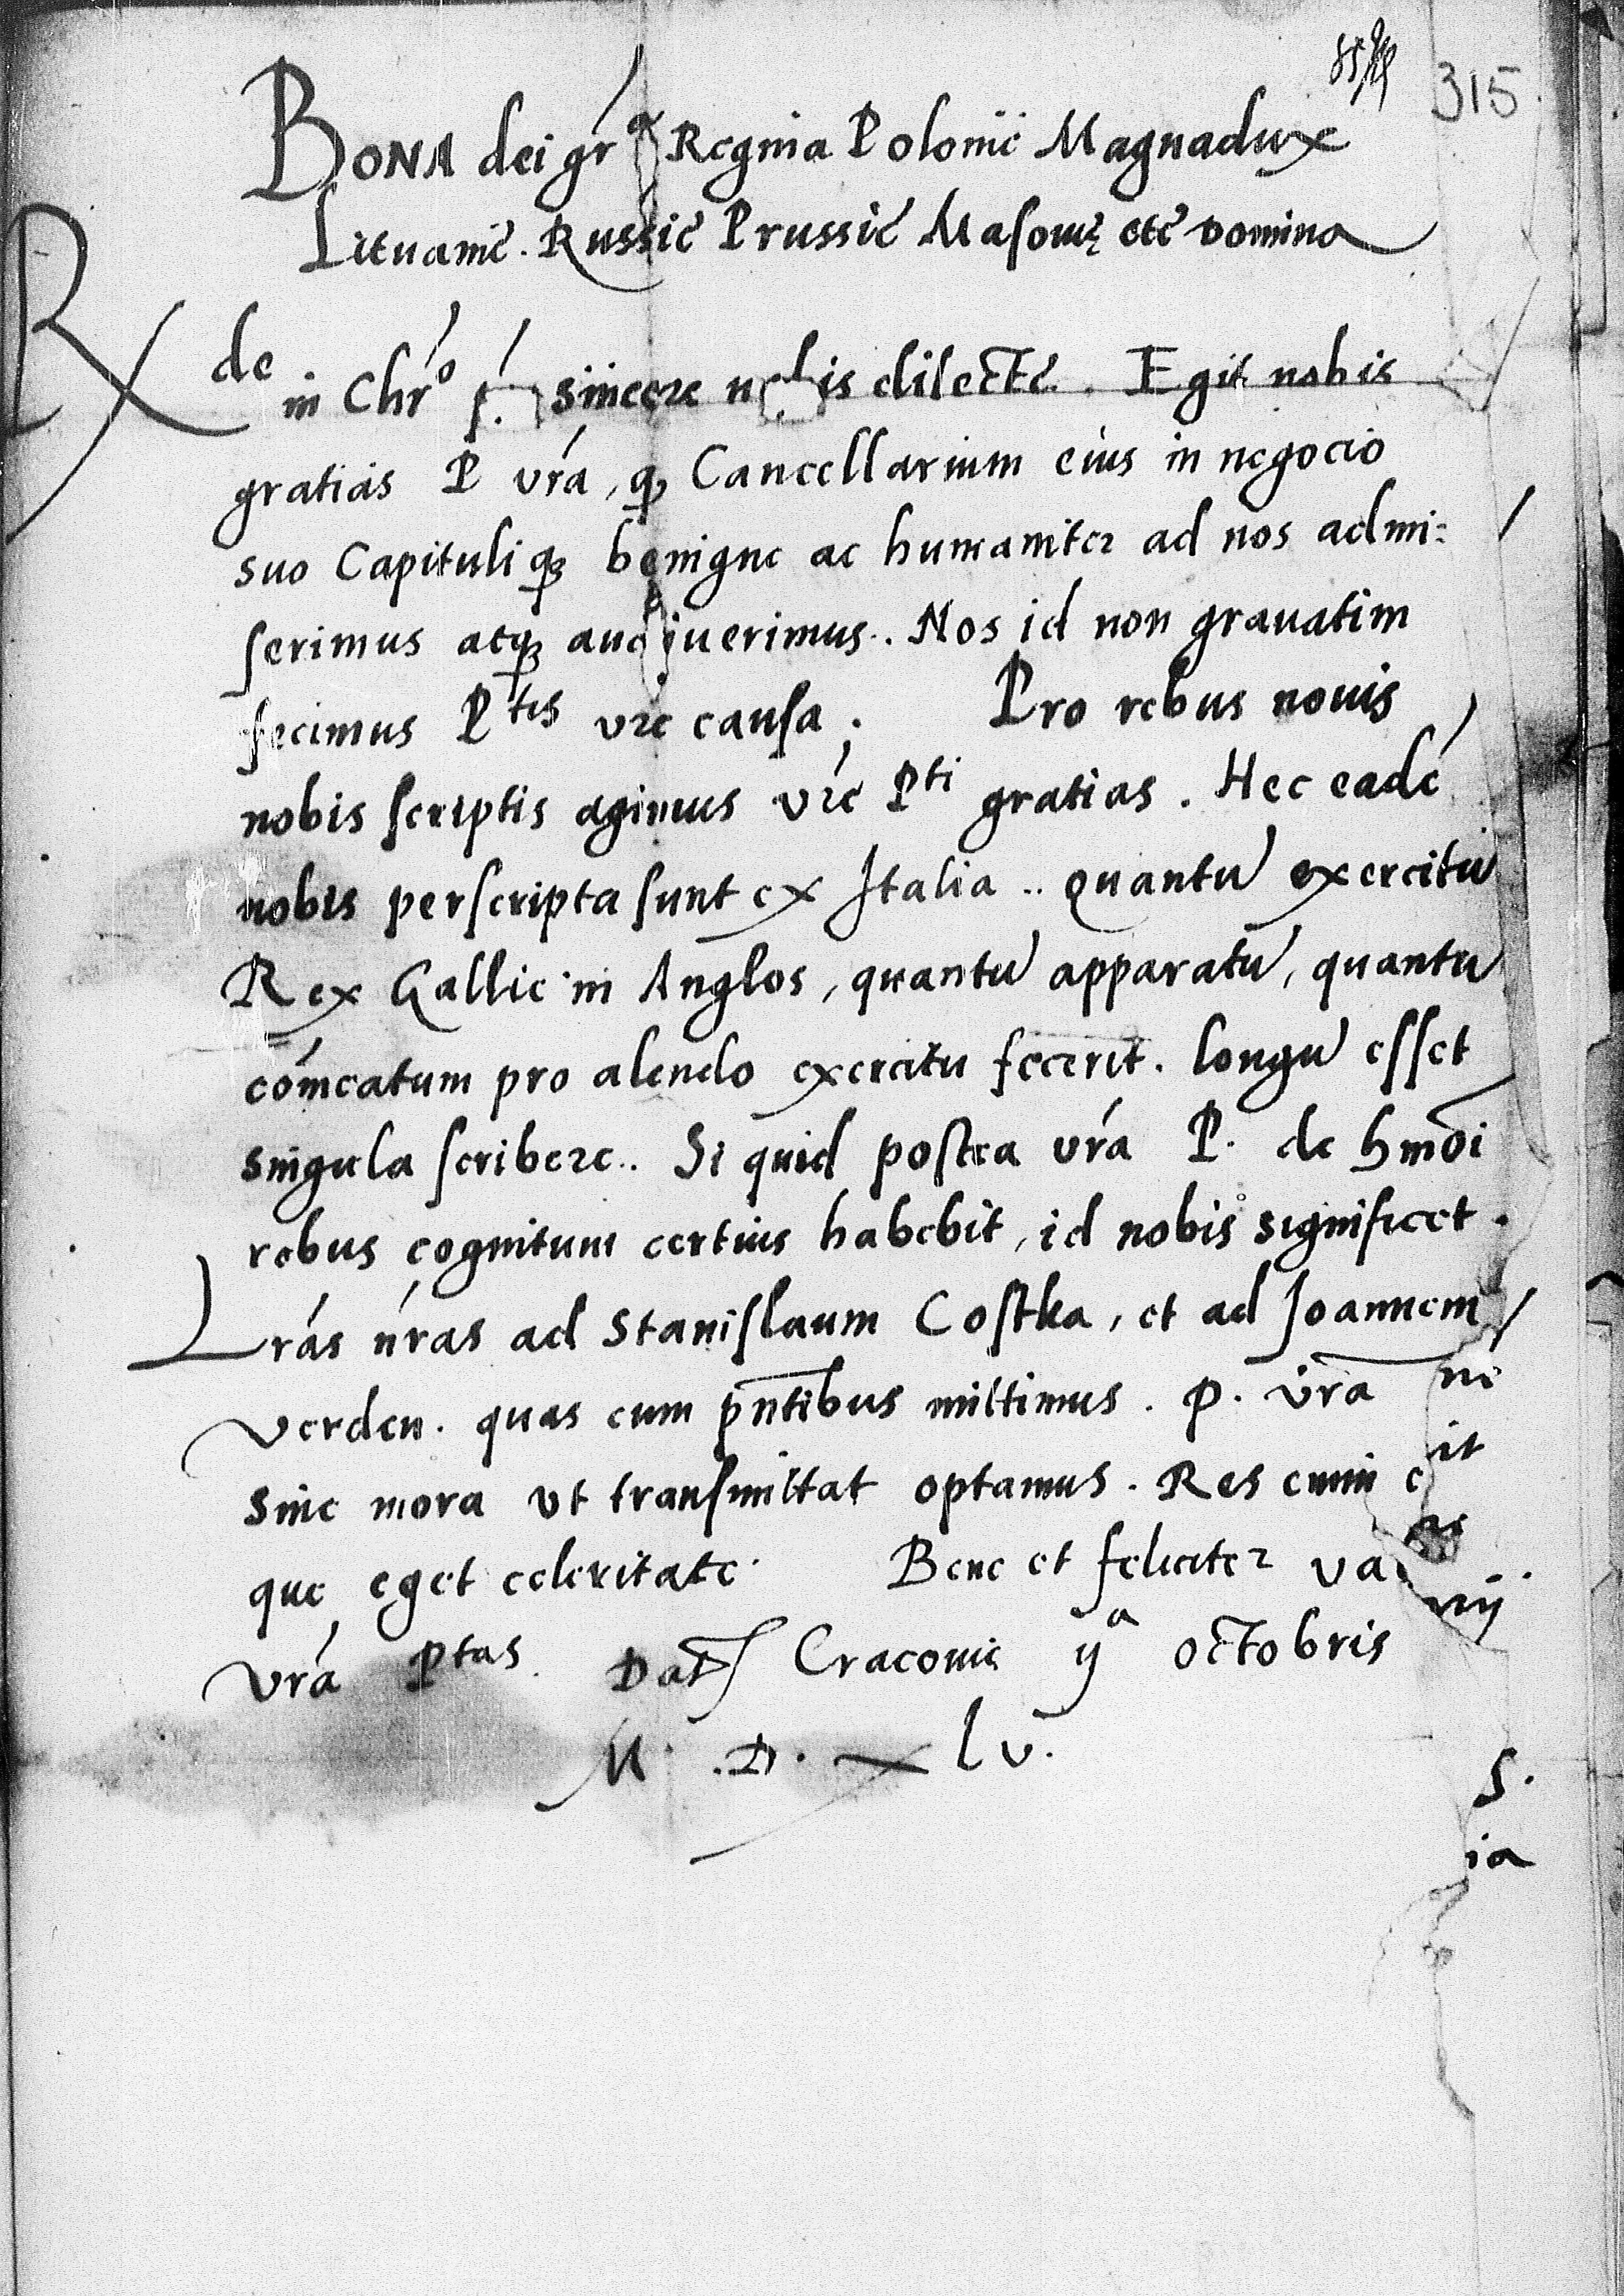 315
BONA dei gr̃a Regina Polonie Magnadux
Lituanie. Russie Prussie Masouię etc̃ Domina
Rde in Chr̃o p̃. sincere nobis dilecte. Egit nobis
gratias P vr̃a, qꝫ Cancellarium eius in negocio
suo Capituliqꝫ benigne ac humaniter ad nos admi:
serimus atqꝫ audiuerimus. Nos id non grauatim
fecimus Ptis vrẽ causa. Pro rebus nouis
nobis scriptis agimus vrẽ Pti gratias. Hec eadẽ
nobis perscripta sunt ex Italia.. quantũ exercitũ
Rex Gallie in Anglos, quantũ apparatũ, quantũ
com̃eatum pro alendo exercitu fecerit. longũ esset
singula scribere.. Si quid postea vr̃a P. de hm̃oi
rebus cognitum certius habebit, id nobis significet.
Lr̃as nr̃as ad Stanislaum Costka, et ad Joannem
verden. quas cum pn̄tibus mittimus. p. vr̃a
sine mora vt transmittat optamus. Res enim e
que eget celeritate. Bene et feliciter va
vr̃a Ptas. Dat̃ Cracouie ijª octobris
M. .D. xlv.
nẽ
it
iij
s.
ia